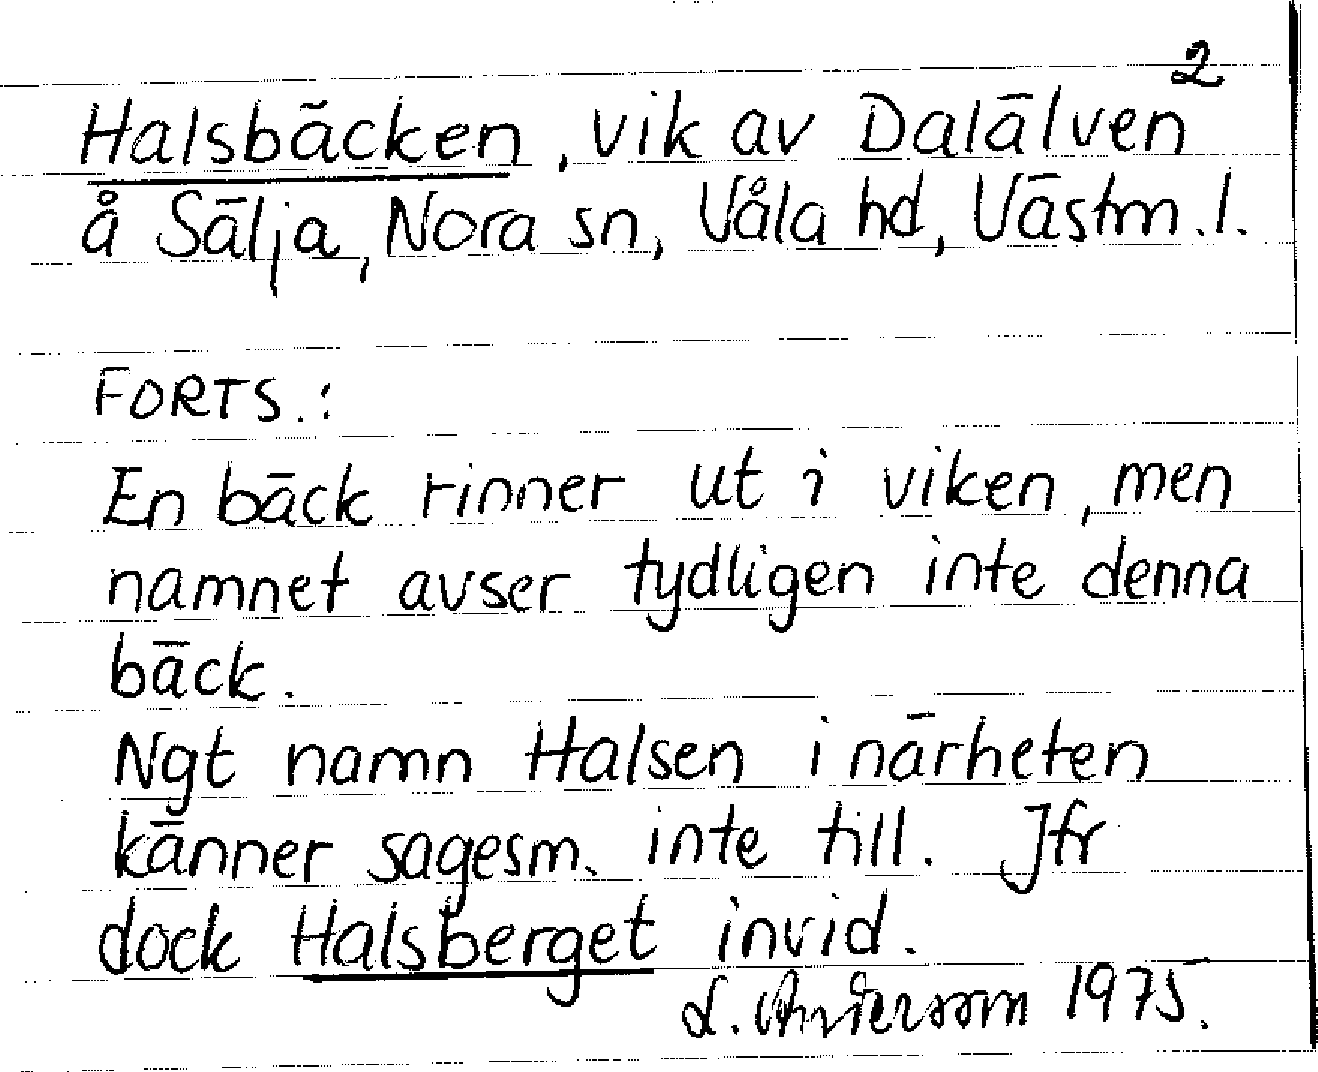 2
Halsbäcken, vik av Dalälven
å Sälja, Nora sn, Våla hd, Västm.l.
FORTS.:
En bäck rinner ut i viken, men
namnet avser tydligen inte denna
bäck.
Ngt namn Halsen i närheten
känner sagesm. inte till. Jfr
dock Halsberget invid.
L. Andersson 1975.